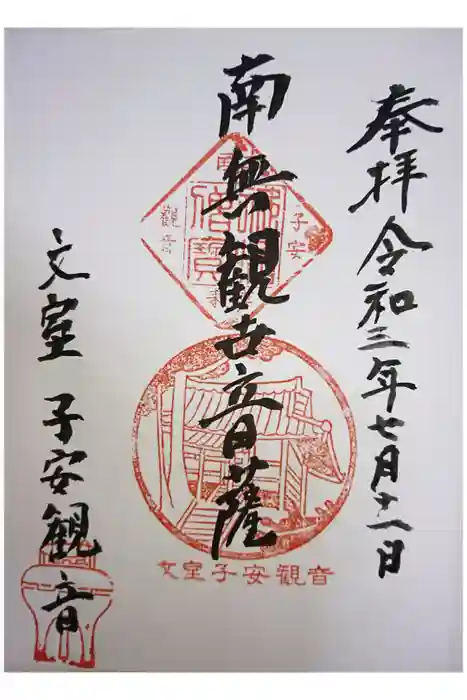 奉拝 令和三年七月十一日
南無観世音薩
文室 子安観音
子安
觀音
文室子安観音